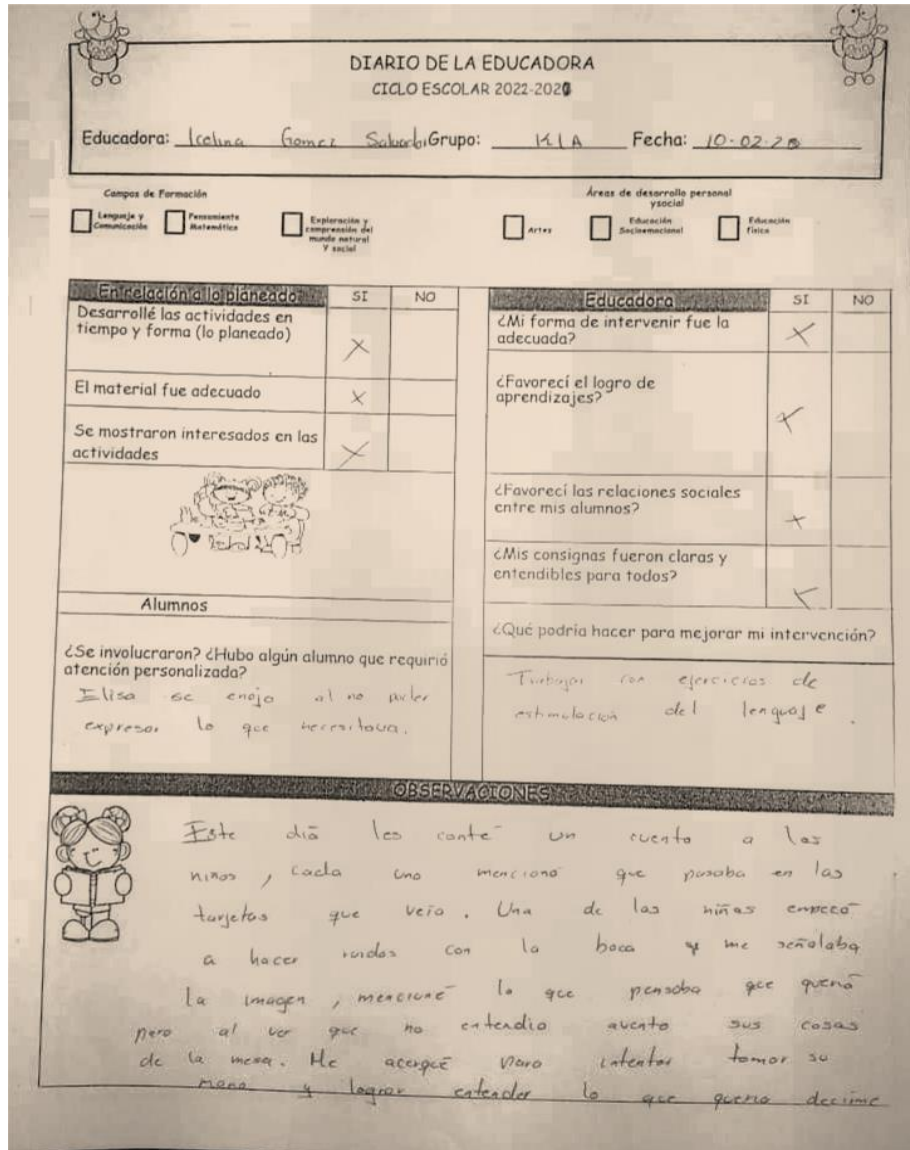 DIARIO DE LA EDUCADORA
CICLO ESCOLAR 2022-202
Educadora: Icelina Gomez Salvador Grupo: K1A Fecha: 10-02-2
Campos de Formación
Áreas de desarrollo personal
y social
Lenguaje y
Comunicación
Pensamiento
Matemático
Exploración y
comprensión del
mundo natural
Y social
Artes
Educación
Socioemocional
Educación
física
En relación a lo planeado SI NO
Desarrollé las actividades en
tiempo y forma (lo planeado) X
El material fue adecuado X
Se mostraron interesados en las
actividades X
Alumnos
¿Se involucraron? ¿Hubo algún alumno que requirió
atención personalizada?
Elisa se enojo al no poder
expresar lo que necesitava.
Educadora SI NO
¿Mi forma de intervenir fue la
adecuada? X
¿Favorecí el logro de
aprendizajes? X
¿Favorecí las relaciones sociales
entre mis alumnos? X
¿Mis consignas fueron claras y
entendibles para todos? X
¿Qué podría hacer para mejorar mi intervención?
Trabajar con ejercicios de
estimulación del lenguaje.
OBSERVACIONES
Este diá les conté un cuento a los
niños, cada uno mencionó que pasaba en las
tarjetas que veía. Una de las niñas empezó
a hacer ruidos con la boca y me señalaba
la imagen, mencioné lo que pensaba que quería
pero al ver que no entendio avento sus cosas
de la mesa. Me acerqué para intentar tomar su
mano y lograr entender lo que queria decirme